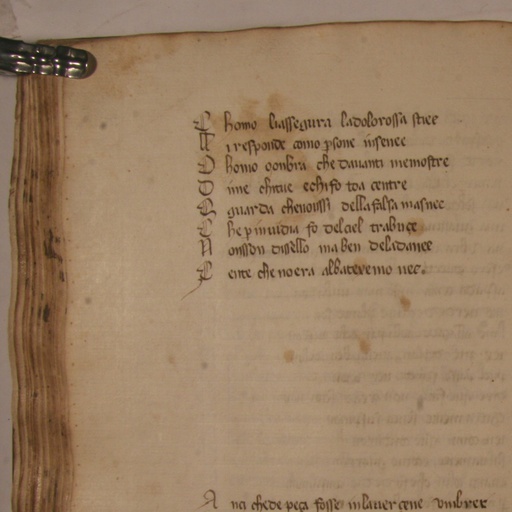 C homo liassegura ladolorossa stiee
A i responde como psone insenee
O homo oonbra che dauanti memostre
D ime chitue echifo toa centre
G guarda che uoissi della falsa masnee
C he p inuidia fo del ciel trabuçe
N onsson disello ma ben deladanee
C ente che no era al bateremo nee.
A nci chede peça fosse in lauer cene